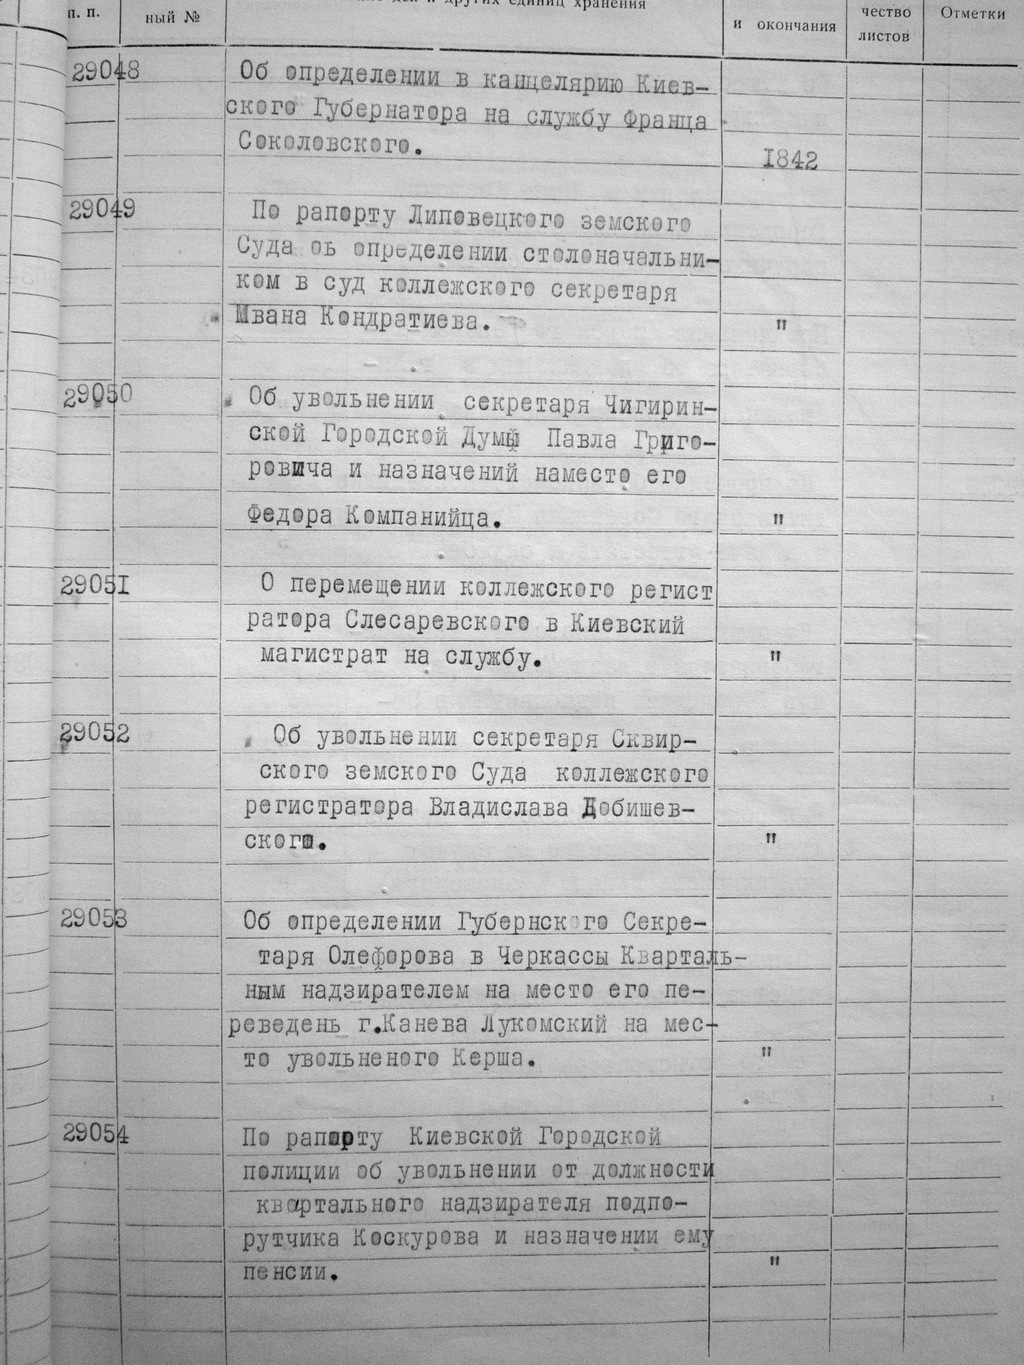 дел и других единиц хранения
п. п.
ный №
и окончания
чество
листов
Отметки
29048
Об определении в канцелярию Киев-
ского Губернатора на службу Франца
Соколовского.
1842
29049
По рапорту Липовецкого земского
Суда оь определении столоначальни-
ком в суд коллежского секретаря
Мвана Кондратиева.
"
29050
Об увольнении секретаря Чигирин-
ской Городской Думы Павла Григо-
ровича и назначений наместо его
Федора Компанийца.
"
29051
О перемещении коллежского регист
ратора Слесаревского в Киевский
магистрат на службу.
"
29052
Об увольнении секретаря Сквир-
ского земского Суда коллежского
регистратора Владислава Добишев-
ского.
"
29053
Об определении Губернского Секре-
таря Олефорова в Черкассы Кварталь-
ным надзирателем на место его пе-
реведень г.Канева Лукомский на мес-
то увольненого Керша.
"
29054
По рапорту Киевской Городской
полиции об увольнении от должности
квартального надзирателя подпо-
рутчика Коскурова и назначении ему
пенсии.
"